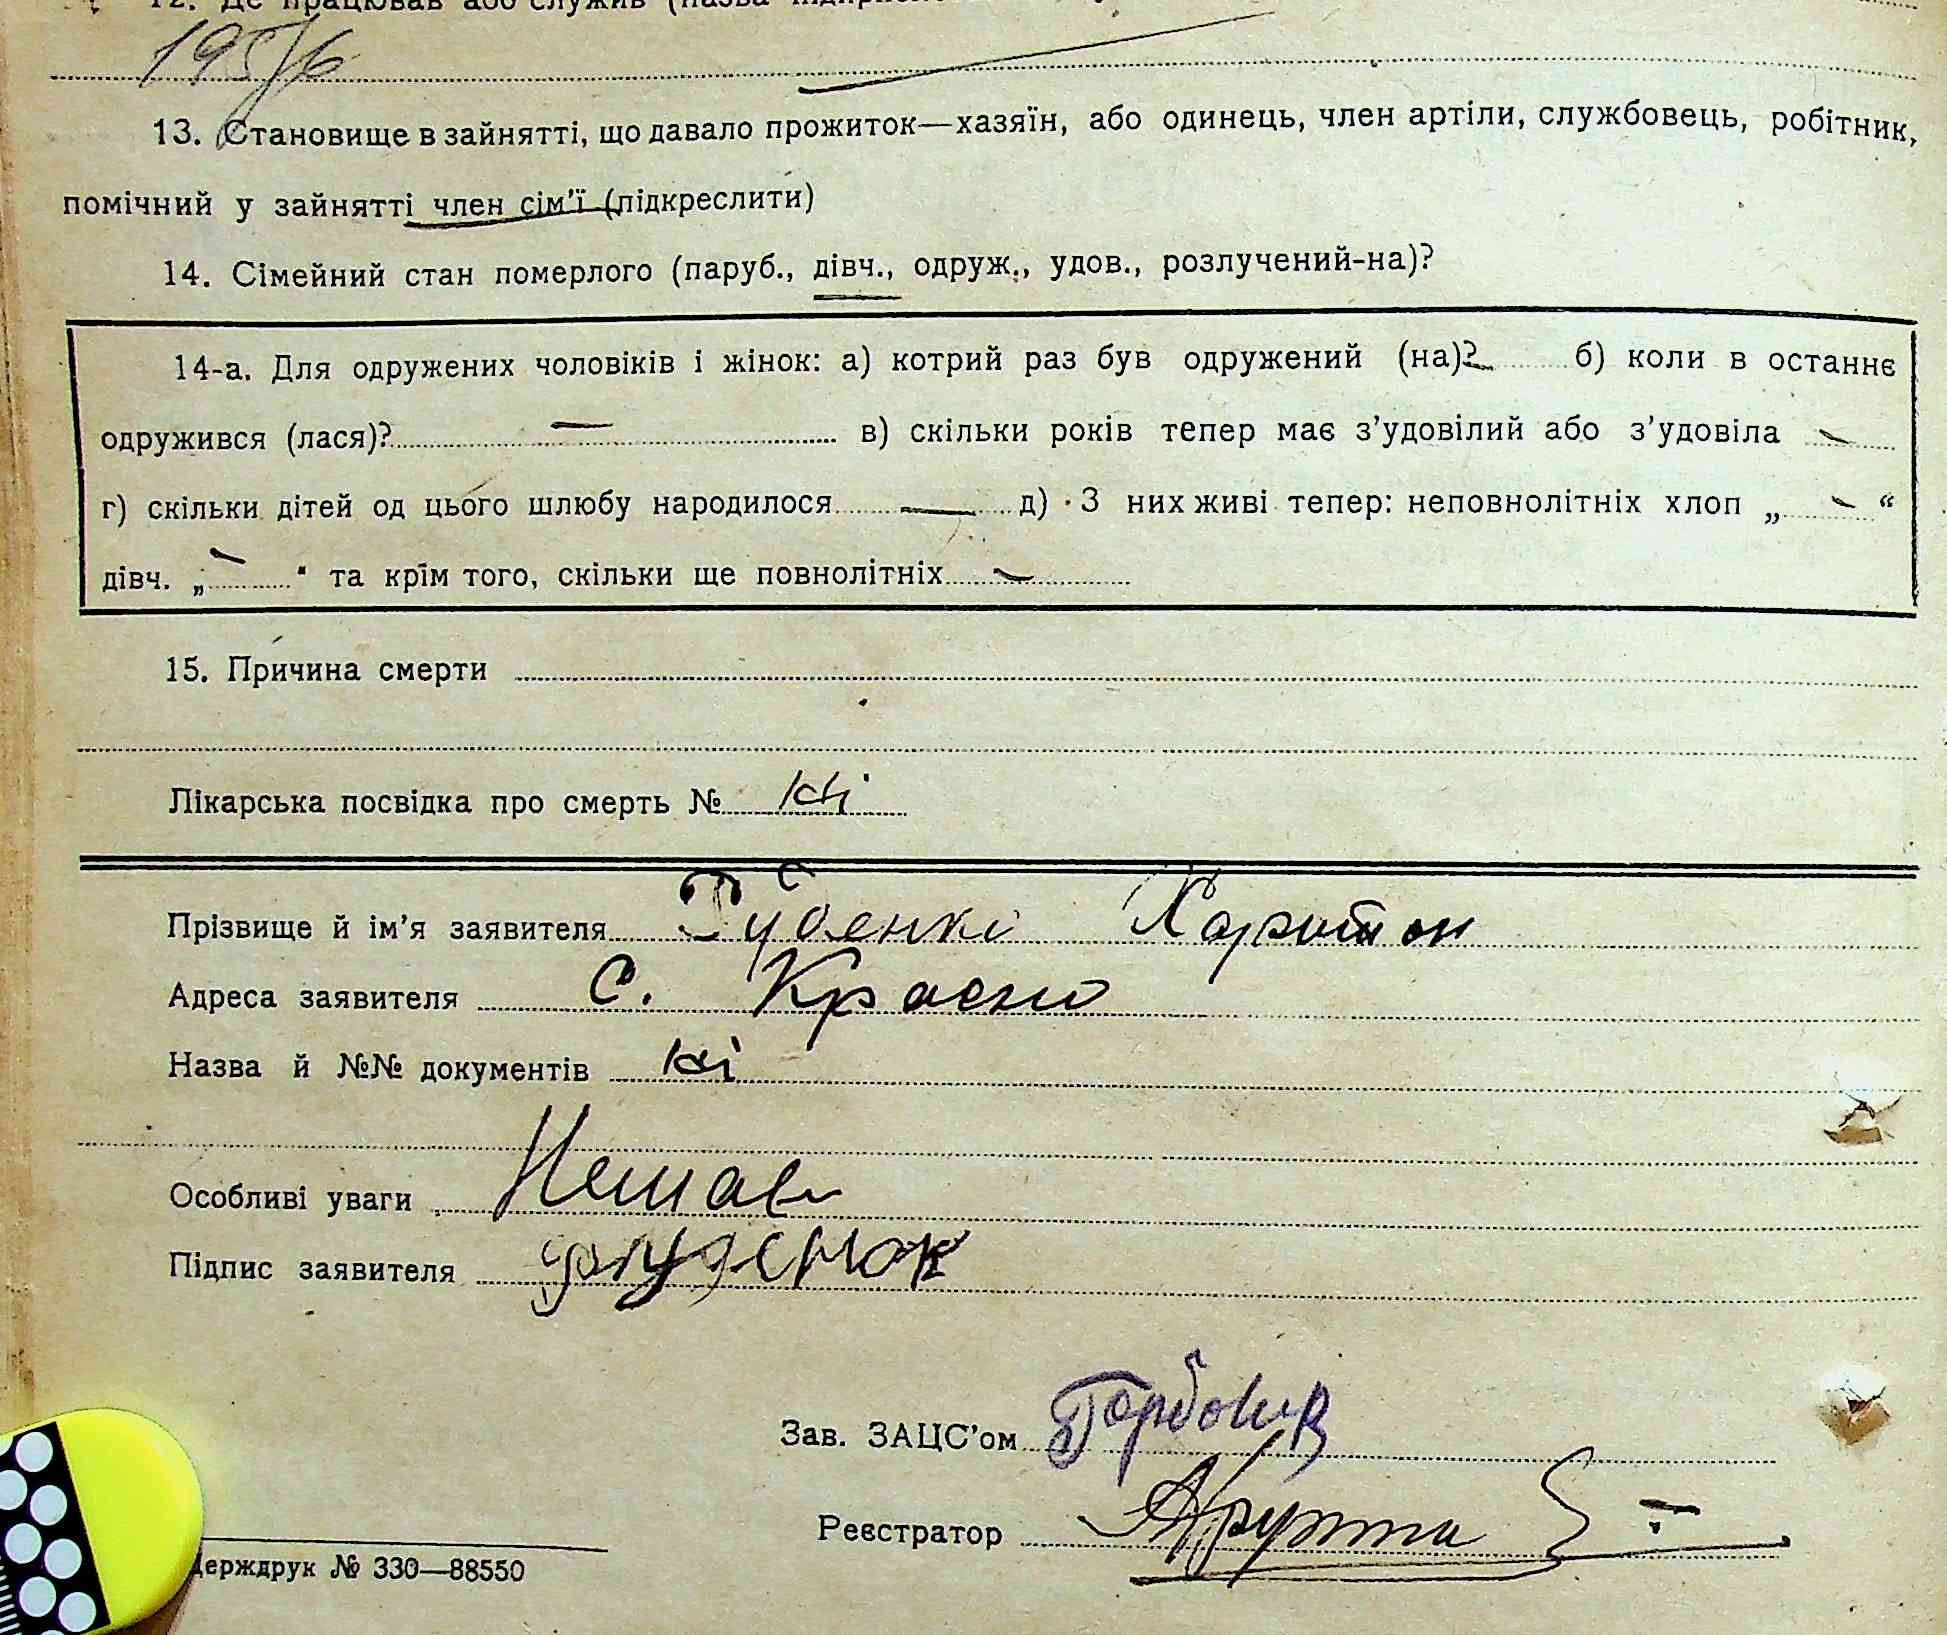 12. Де працював або служив (назва
195/6
13. Становище в зайнятті, що давало прожиток—хазяїн, або одинець, член артіли, службовець, робітник,
помічний у зайнятті член сім'ї (підкреслити)
14. Сімейний стан померлого (паруб., дівч., одруж., удов., розлучений-на)?
14-а. Для одружених чоловіків і жінок: а) котрий раз був одружений (на)? — б) коли в останнє
одружився (лася)? — в) скільки років тепер має з'удовілий або з'удовіла —
г) скільки дітей од цього шлюбу народилося — д) З них живі тепер: неповнолітніх хлоп „ — “
дівч. „ — “ та крім того, скільки ще повнолітніх —
15. Причина смерти
Лікарська посвідка про смерть № ні
Прізвище й ім'я заявителя Харитон
Адреса заявителя С. Красно
Назва й №№ документів ні
Особливі уваги Немає
Підпис заявителя
Зав. ЗАЦС'ом
Реєстратор
Держдрук № 330—88550